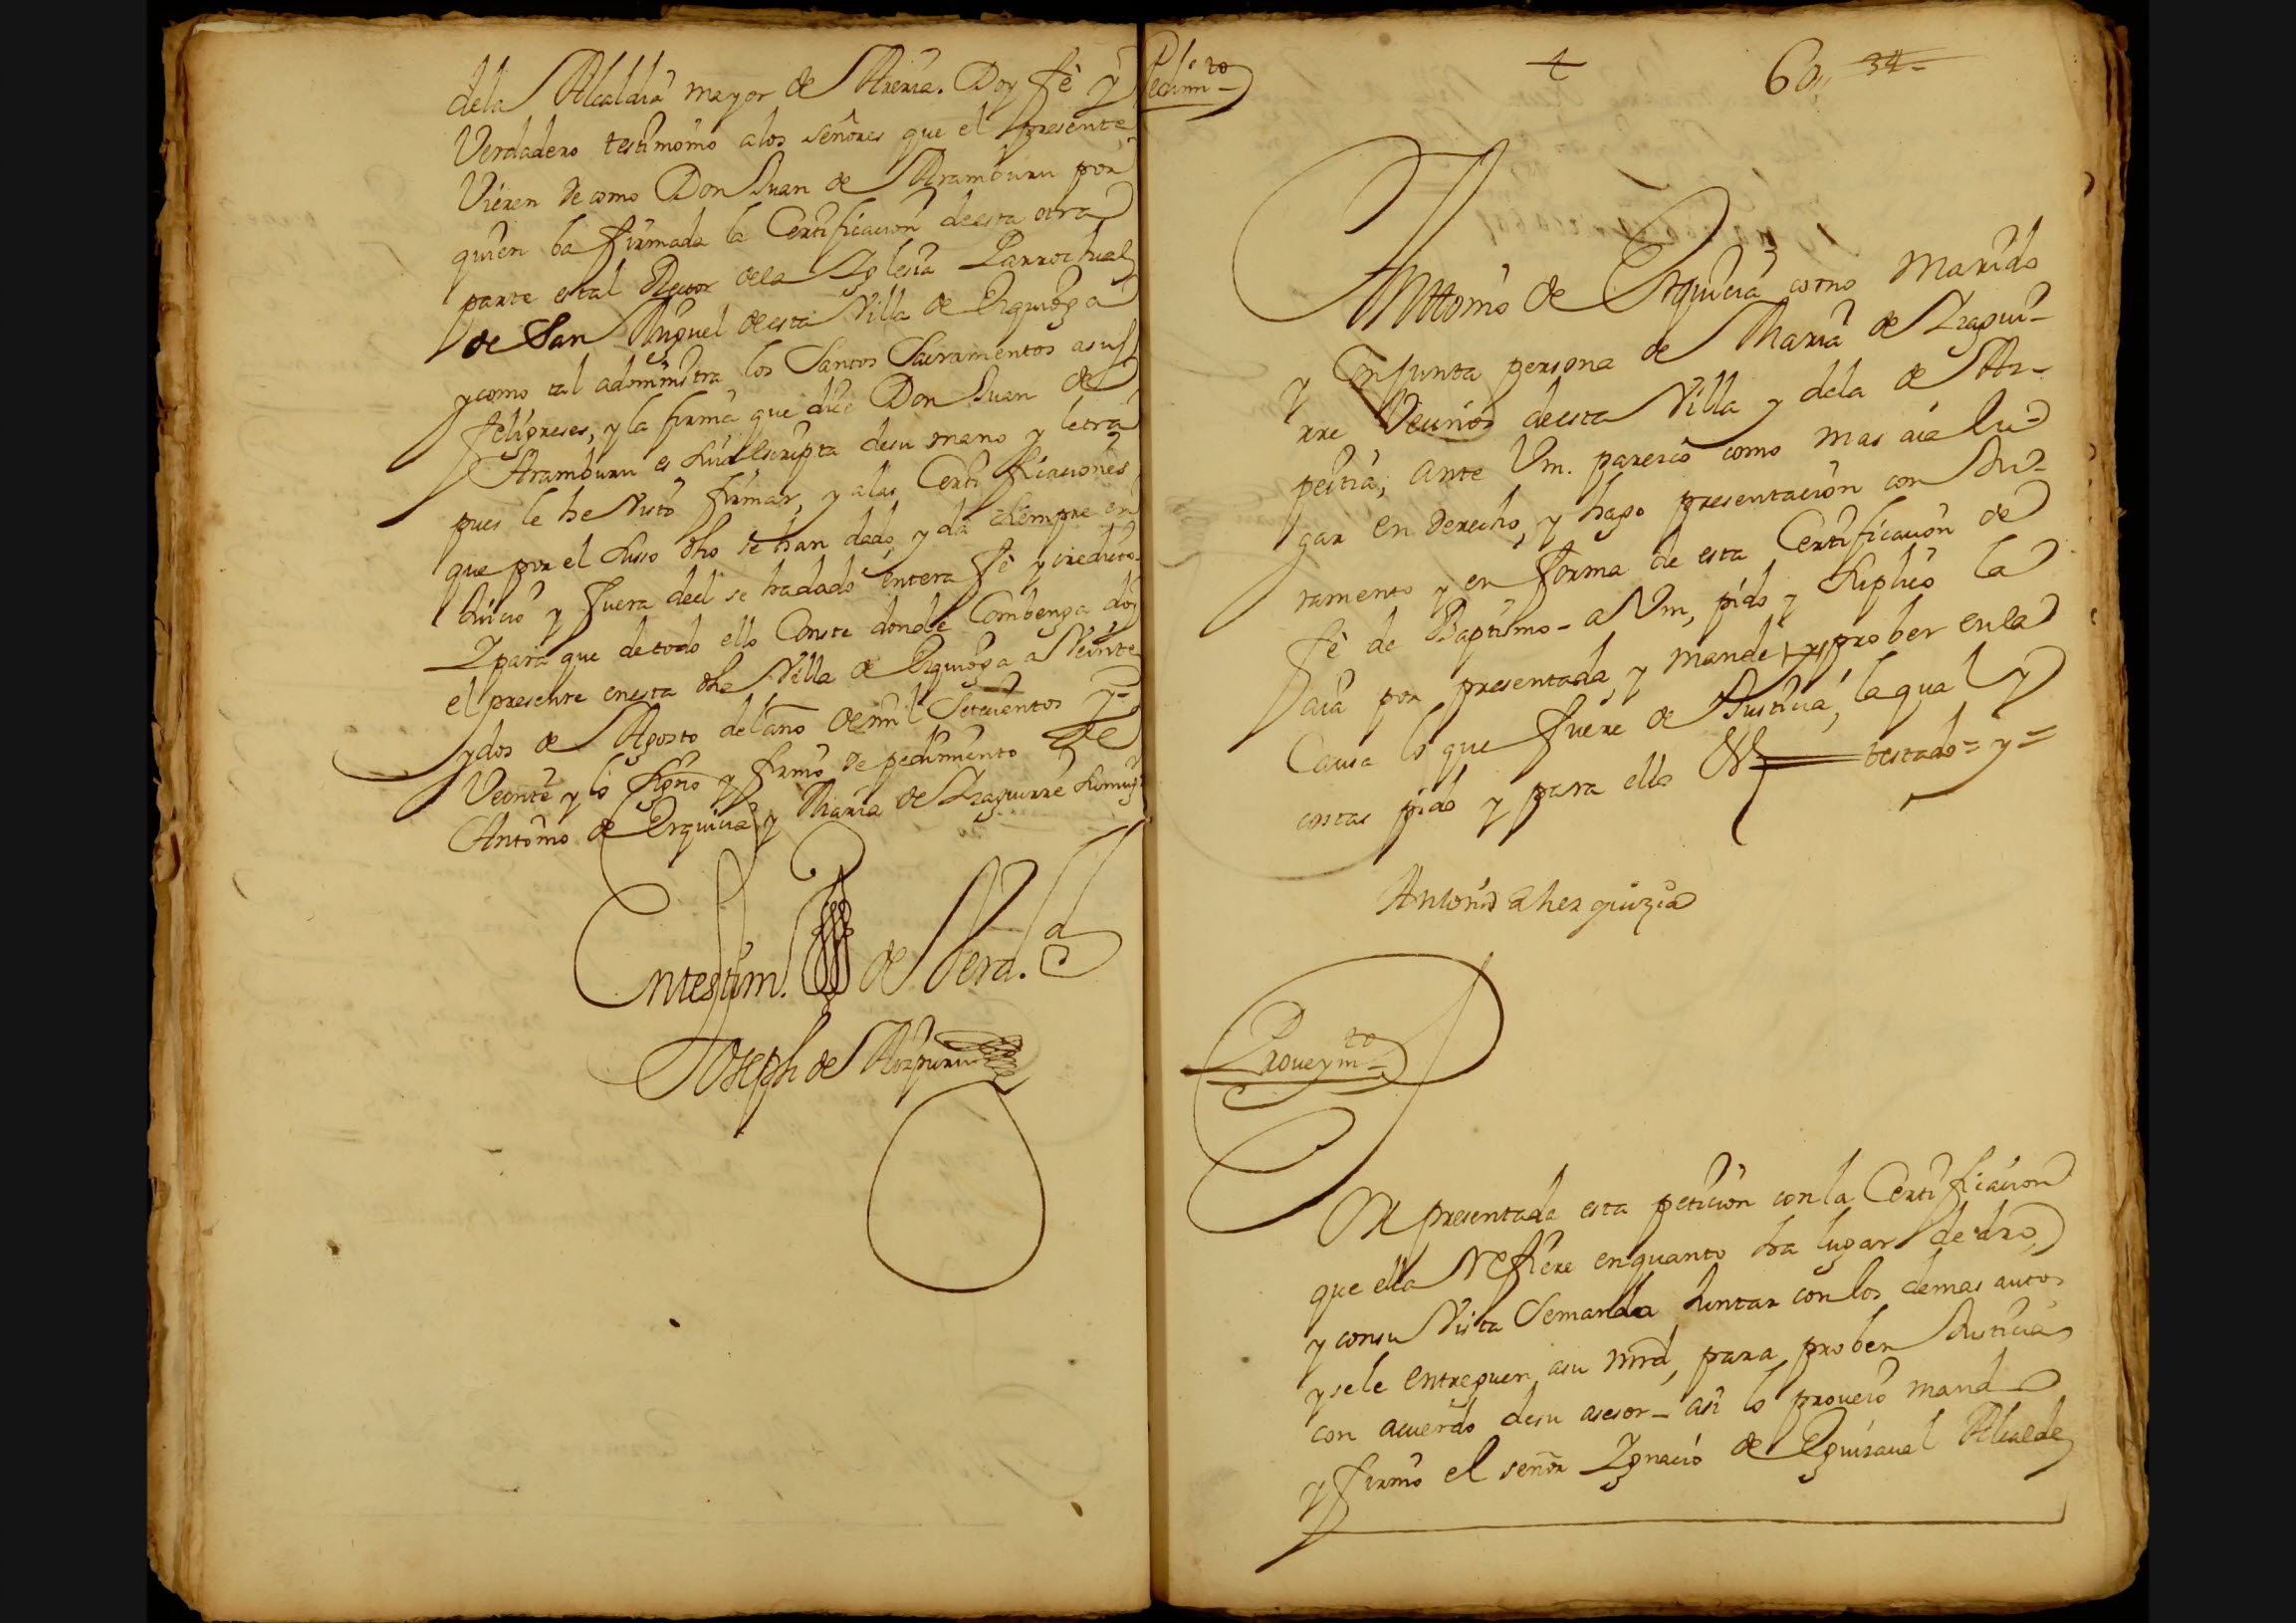 dela Alcaldia mayor de Areria. Doy fè y
Verdadero testimonio alos señores que el presente
Vieren de como Don Juan de Aramburu por
quien ba firmada la Certificacion deesta otra
parte es tal Rector dela Iglesia Parrochual
de San Miguel deesta Villa de Ezquioga
y como tal administra los Santos Sacramentos asus
feligreses, y la firma que dice Don Juan de
Aramburu es suia escripta desu mano y letra
pues le he Visto firmar, y alas Certificaciones
que por el suso dho se han dado, y da siempre en
Juicio y fuera deel se hadado entera fè y credito
Ipara que detodo ello Conste donde Combenga doy
el presente enesta dha Villa de Ezquioga a Veinte
ydos de Agosto del año demil Setecientos y
Veinte y lo signo y firmo de pedimiento de
Antonio de Erquicia y Maria de Izaguirre sumug.
Entestim. de Verd.
Joseph de Aizpuru
Pedimi.to
4
60,, 34-
Anttonio de Erquicia como Marido
y Conjunta persona de Maria de Izagui-
rre Vecinos deesta Villa y dela de Az-
peitia, ante Vm. parezco como mas aia lu-
gar en derecho, y hago presentacion con Ju-
ramento y en forma de esta Certificacion de
fè de Baptismo - a Vm, pido y suplico la
aia por presentada, y mande y prober enla
Causa lo que fuere de Justicia, la qual y
costas pido y para ello &c testado = y =
Antonio d herquizia
Proueym.to
Por presentada esta peticion con la Certificacion
que ella Refiere enquanto ha lugar de dro,
y consu Vista Semanda Juntar con los demas autos
y sele entreguen asu mrd, para prober Justicia
con acuerdo desu asesor - asi lo proueio mando
y firmo el señor Ignacio de Eguizaual Alcalde